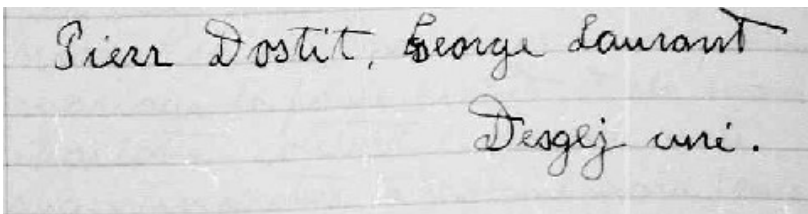 Pierr Dostit, George Laurant
Desgej curé.